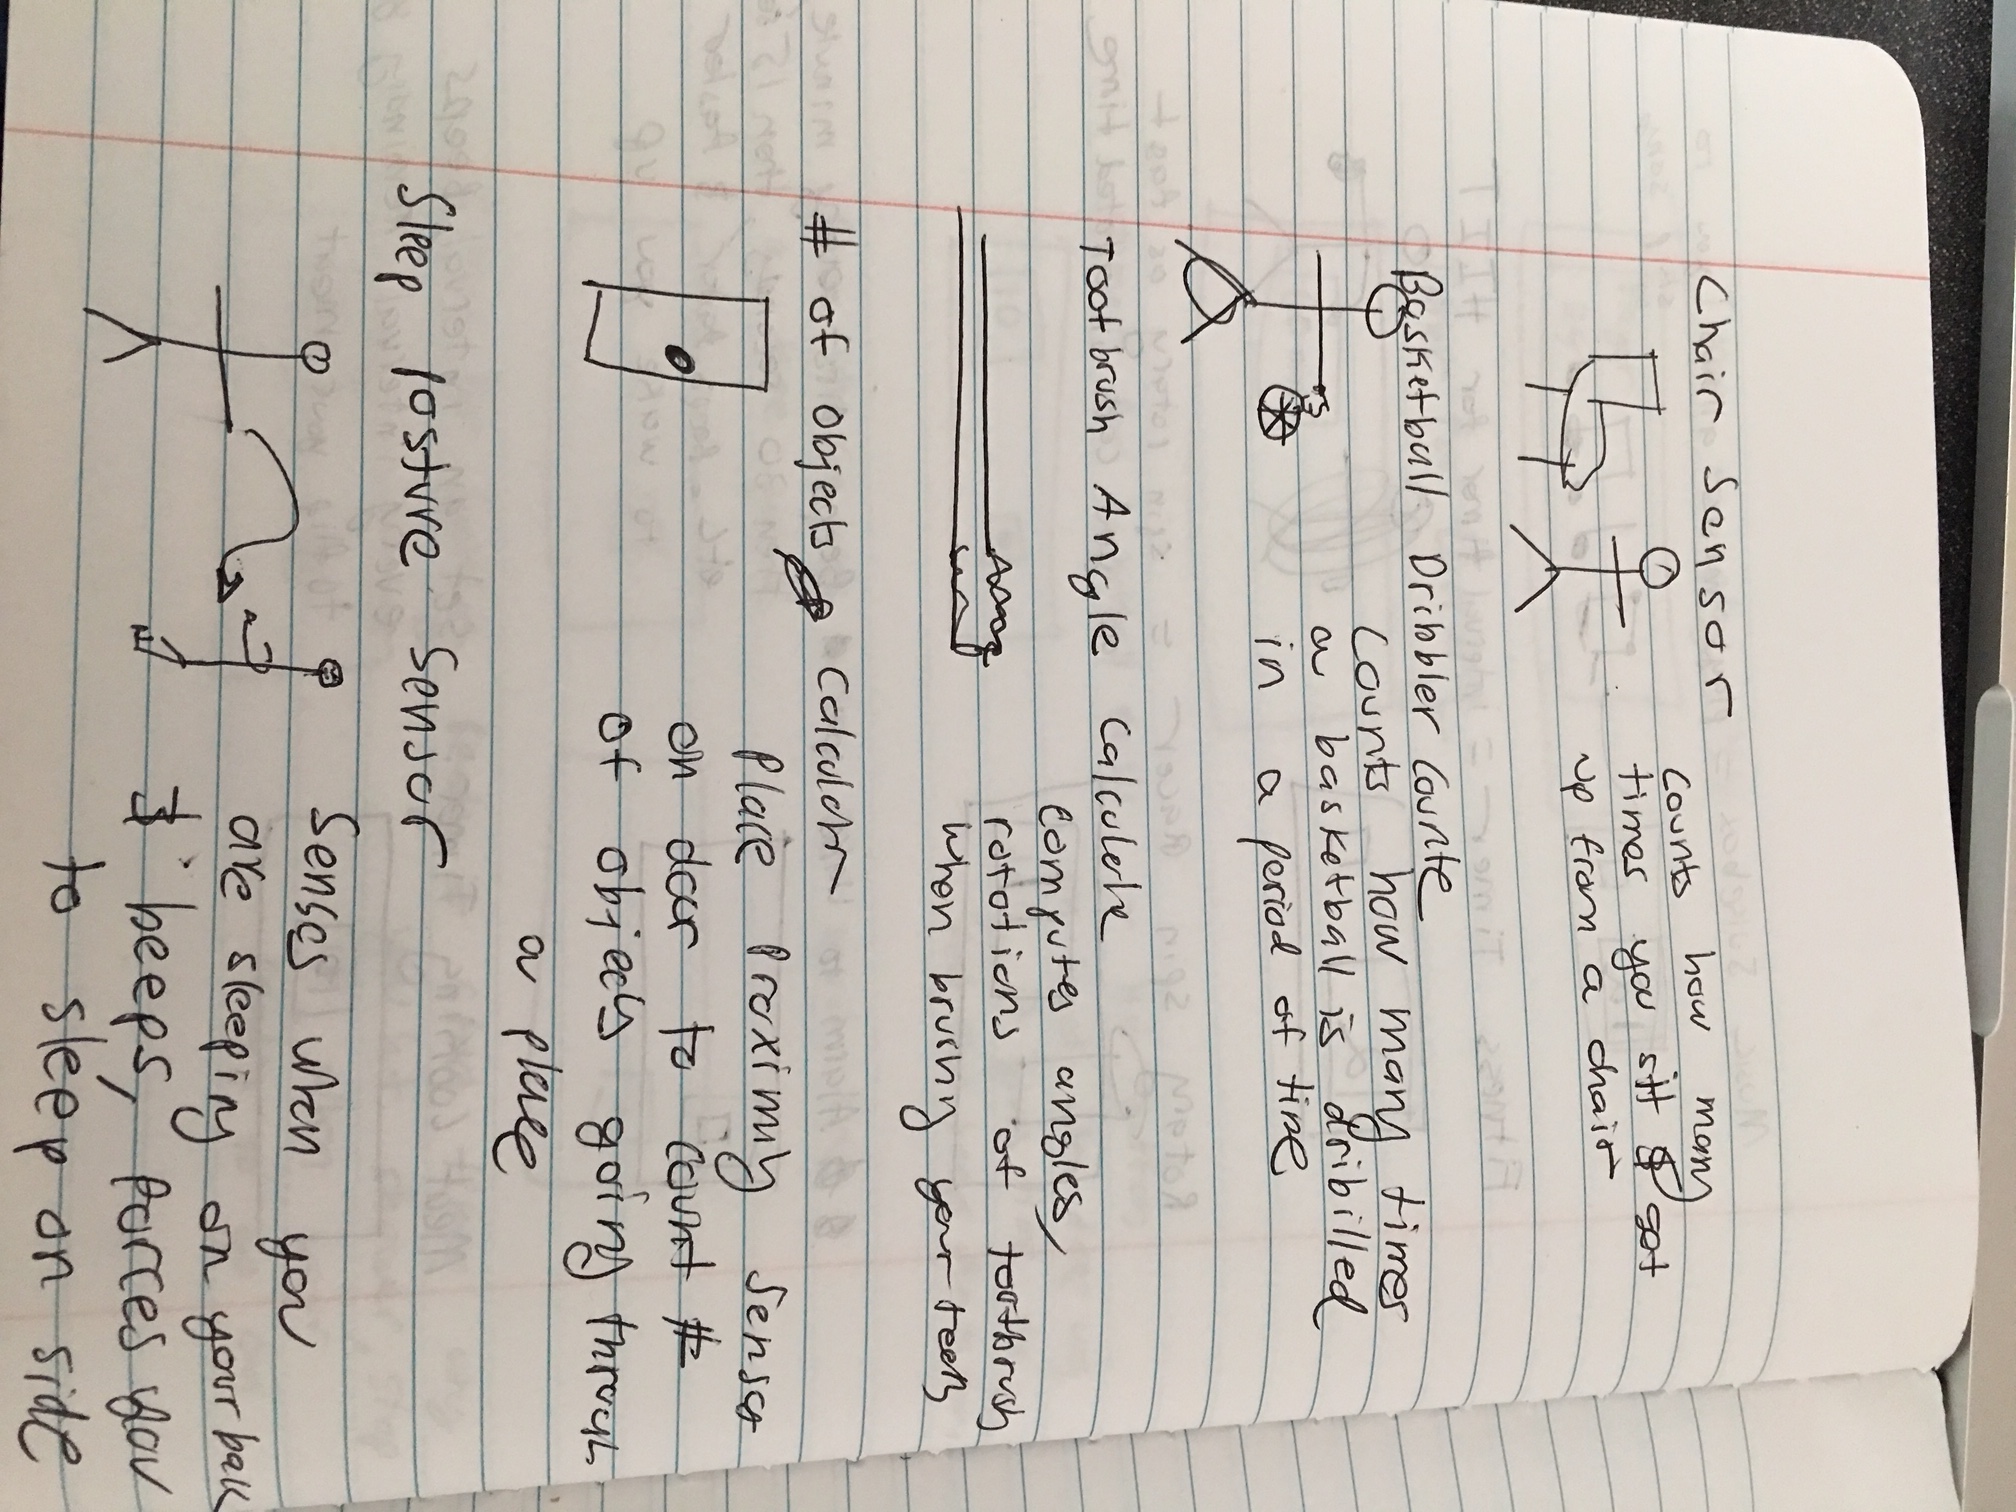 Chair Sensor
Counts how many
times you sit & got
up from a chair
Basketball Dribbler Counte
Counts how many times
a basketball is dribilled
in a period of time
Tootbrush Angle Calculate
Computes angles,
rotations of toothrush
when brushing your teeth
# of objects Calculatr
Place Proximity Sensor
on door to count #
of objects going through
a place
Sleep Posture Sensor
Senses when you
are sleeping on your back
& beeps, forces you
to sleep on side